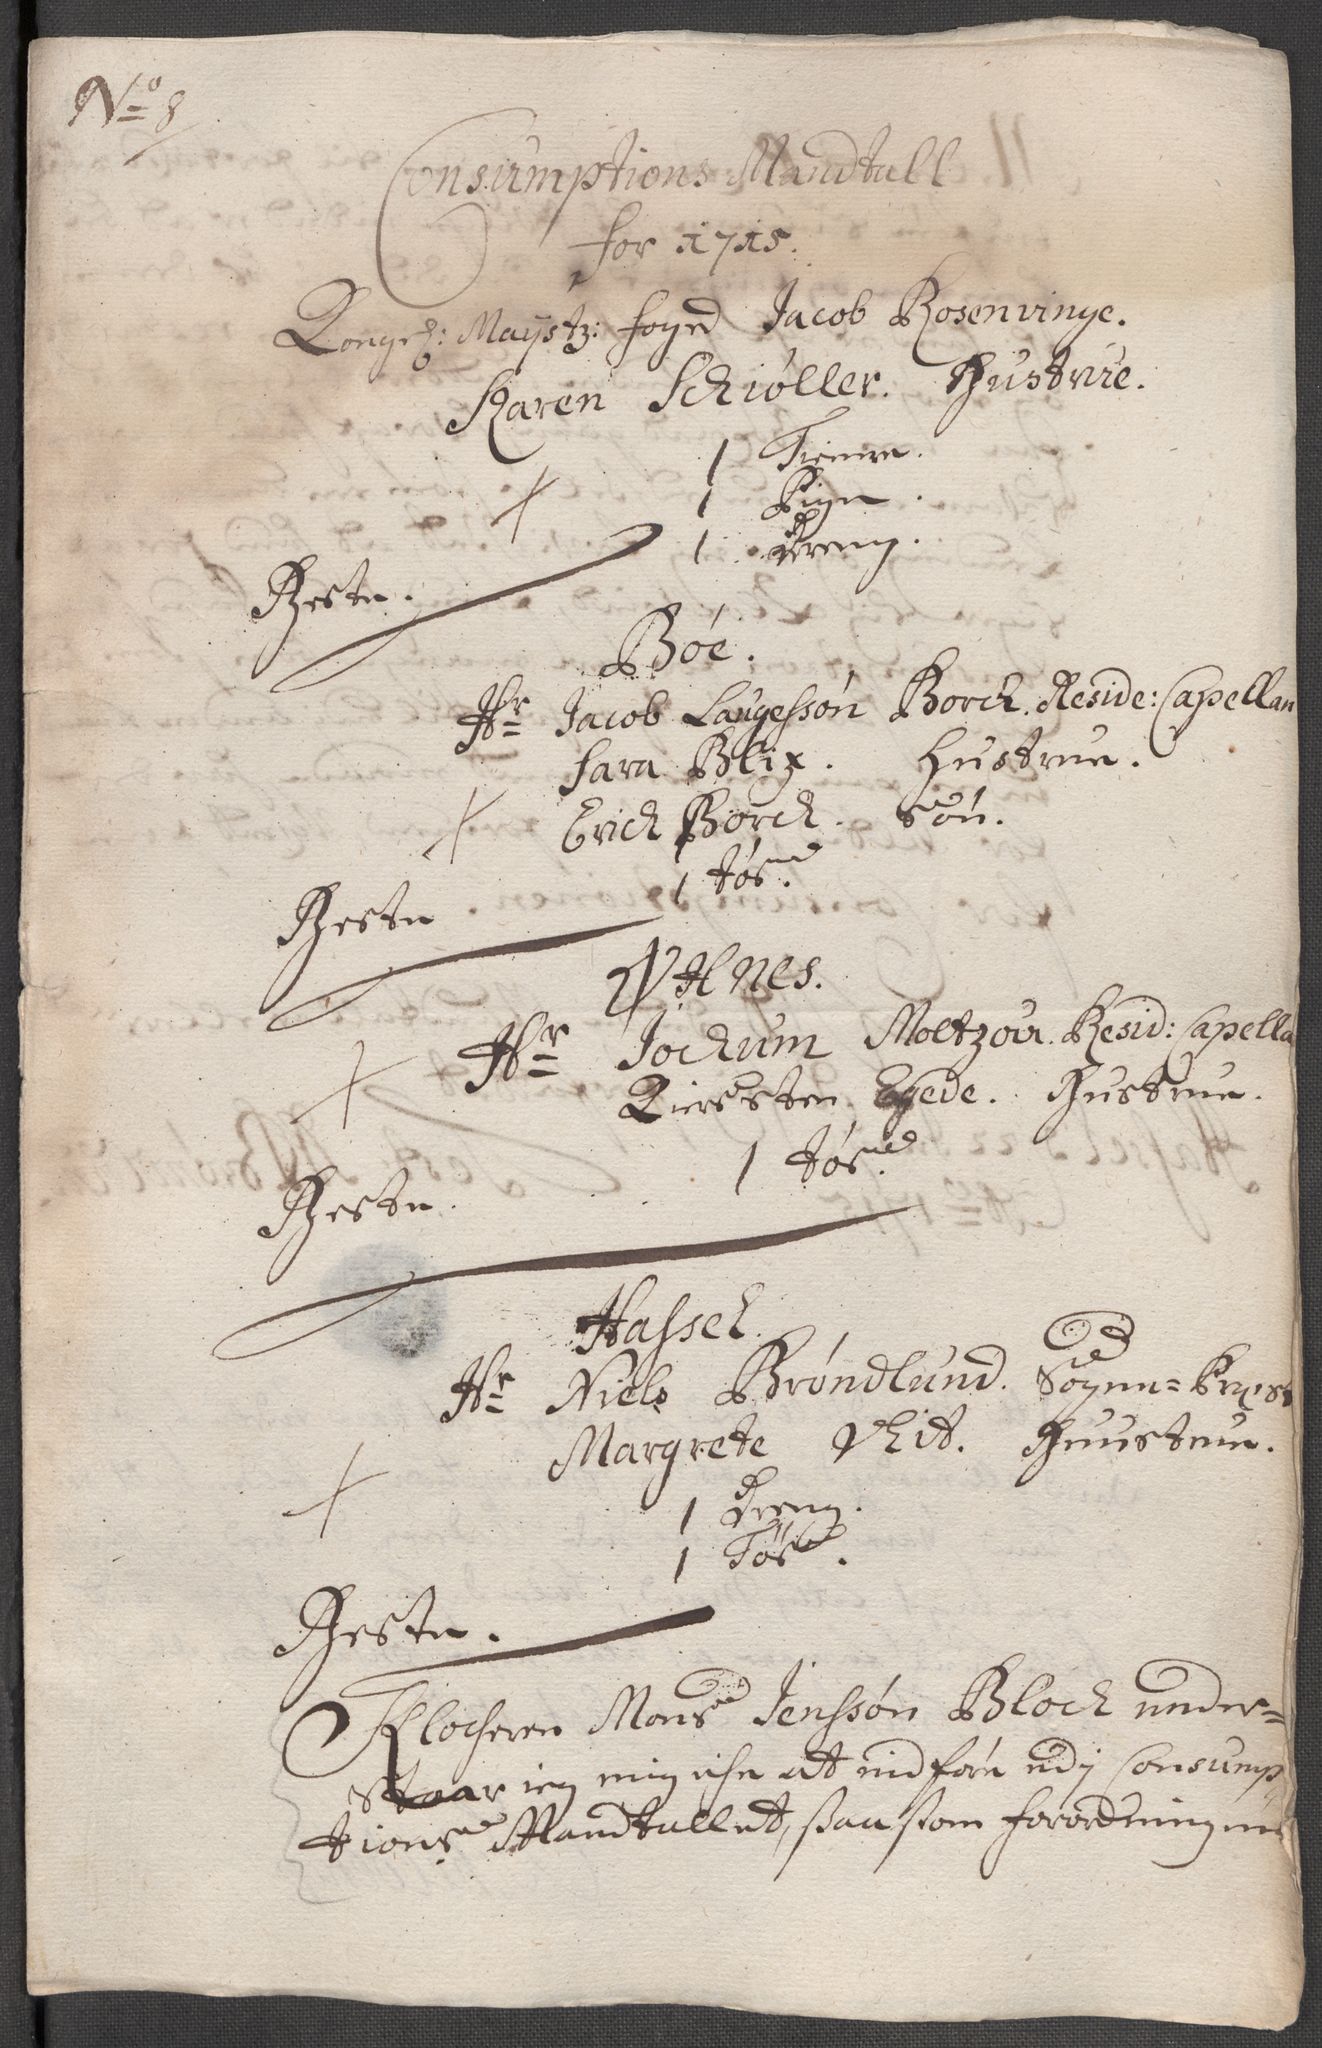 No 8
Consumptions Mandtall
for 1715.
Kongel: Maystz: foged Jacob Rosenvinge.
Karen Schiøller. Hustrue.
1 Tienere.
1 Pige.
1 Dreng.
Heste.
Bøe.
Hr Jacob Laugessøn Borch. Reside: Capellan
Sara Blix. Hustrue.
Erich Borch. Søn.
1 tøs.
Heste
Hr Jochum Moltzou. Resid: Capella
Kiersten Egede. Hustrue.
1 tøs.
Heste.
Hassel.
Hr Niels Brøndlund. Sogne=Præst
Margrete Hustrue.
1 Dreng.
1 Tøs.
Heste.
Klocheren Mons Jenssøn Bloch under=
staar ieg mig iche at indføre udj Consump
tions Mandtallet, saasom forordningen